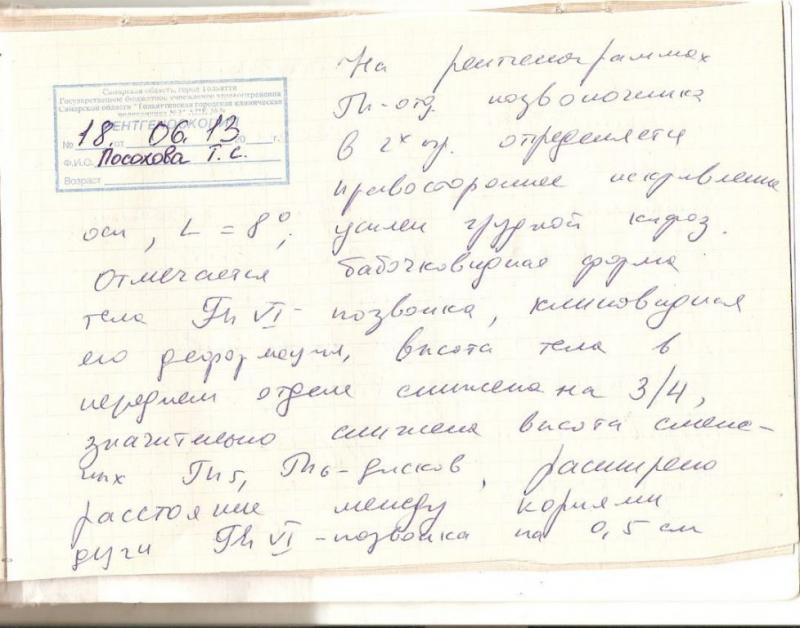 Самарская область, город Тольятти
Государственное бюджетное учреждение здравоохранения
Самарской области "Тольяттинская городская клиническая
РЕНТГЕНОСКОПИЯ
№ 18. от 06. 13 г.
Ф.И.О. Посохова Т. С.
Возраст
На рентгенограммах
Th-отд. позвоночника
в 2х пр. определяется
правостороннее искривление
оси, L = 8°, усилен грудной кифоз.
Отмечается бабочковидная форма
тела Th VI - позвонка, клиновидная
его деформация, высота тела в
переднем отделе снижена на 3/4,
значительно снижена высота смеж-
ных Th5, Th6 - дисков, расширено
расстояние между корнями
дуги Th VI - позвонка на 0,5 см